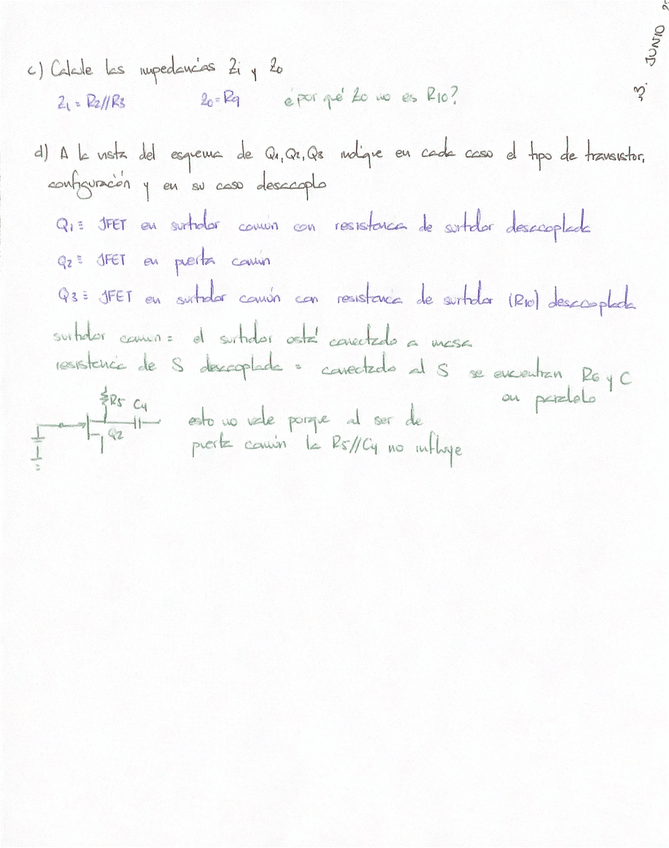 3. JUNIO
c) Calcule las impedancias Zi y Zo
Z1 = R2//R3 Zo = R9 ¿por qué Zo no es R10?
d) A la vista del esquema de Q1, Q2, Q3 indique en cada caso el tipo de transistor,
configuración y en su caso desacoplo
Q1 ≡ JFET en surtidor común con resistencia de surtidor desacoplada
Q2 ≡ JFET en puerta común
Q3 ≡ JFET en surtidor común con resistencia de surtidor (R10) desacoplada
surtidor comun = el surtidor está conectado a masa
resistencia de S desacoplada = conectado al S se encuentran R6 y C
en paralelo
R5 C4
Q2
esto no vale porque al ser de
puerta común la R5//C4 no influye